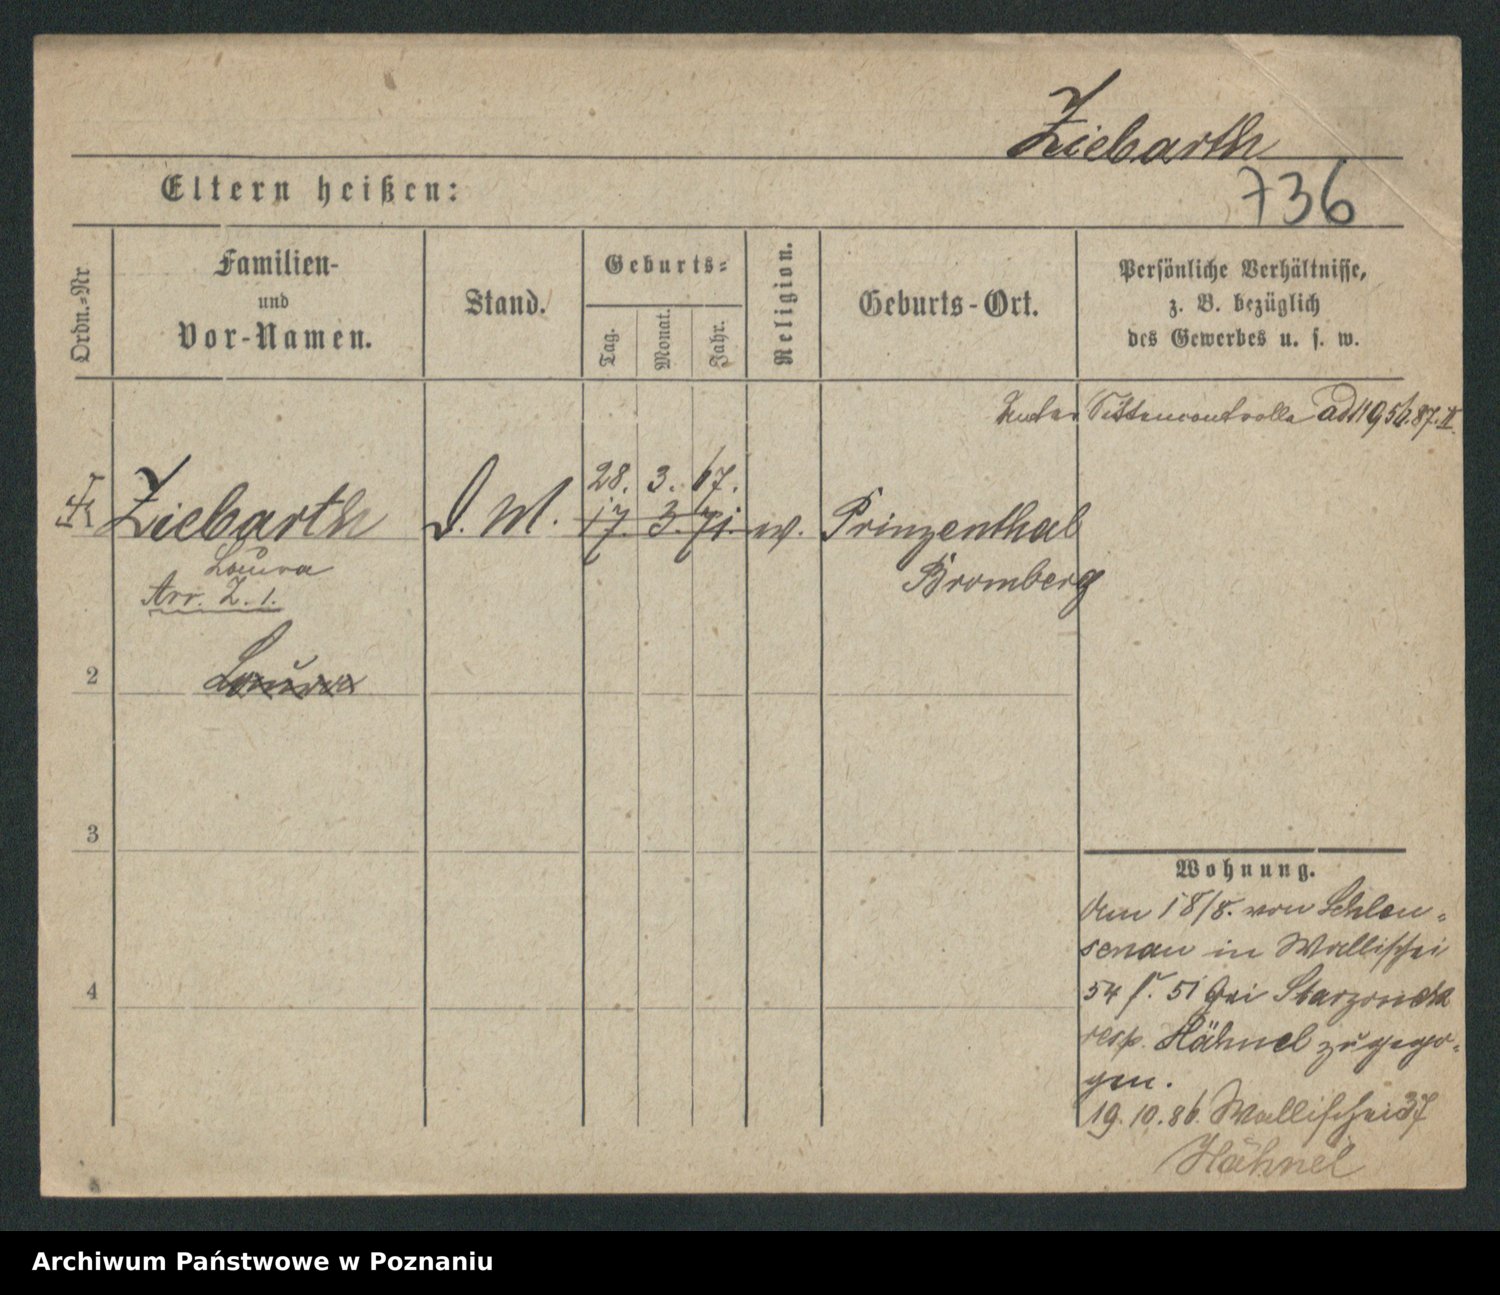 Ziebarth
Eltern heißen:
736
Ordn.=Nr
Familien-
und
Vor-Namen.
Stand.
Geburts=
Tag.
Monat.
Jahr.
Religion.
Geburts-Ort.
Persönliche Verhältnisse,
z. B. bezüglich
des Gewerbes u. s. w.
Unter Sittencontrolle ad 1195/6.87.II.
28. 3. 67.
Ziebarth D. M. 17. 3. 71. w. Prinzenthal
Laura
Bromberg
Arr. Z. 1.
2
Laura
3
Wohnung.
den 18/8. von Schleu=
senau in Wallischei
4
54 f. 51 bei
resp. Hähnel zugezo=
gen.
19.10.86. Wallischei 37
Hähnel
Archiwum Państwowe w Poznaniu